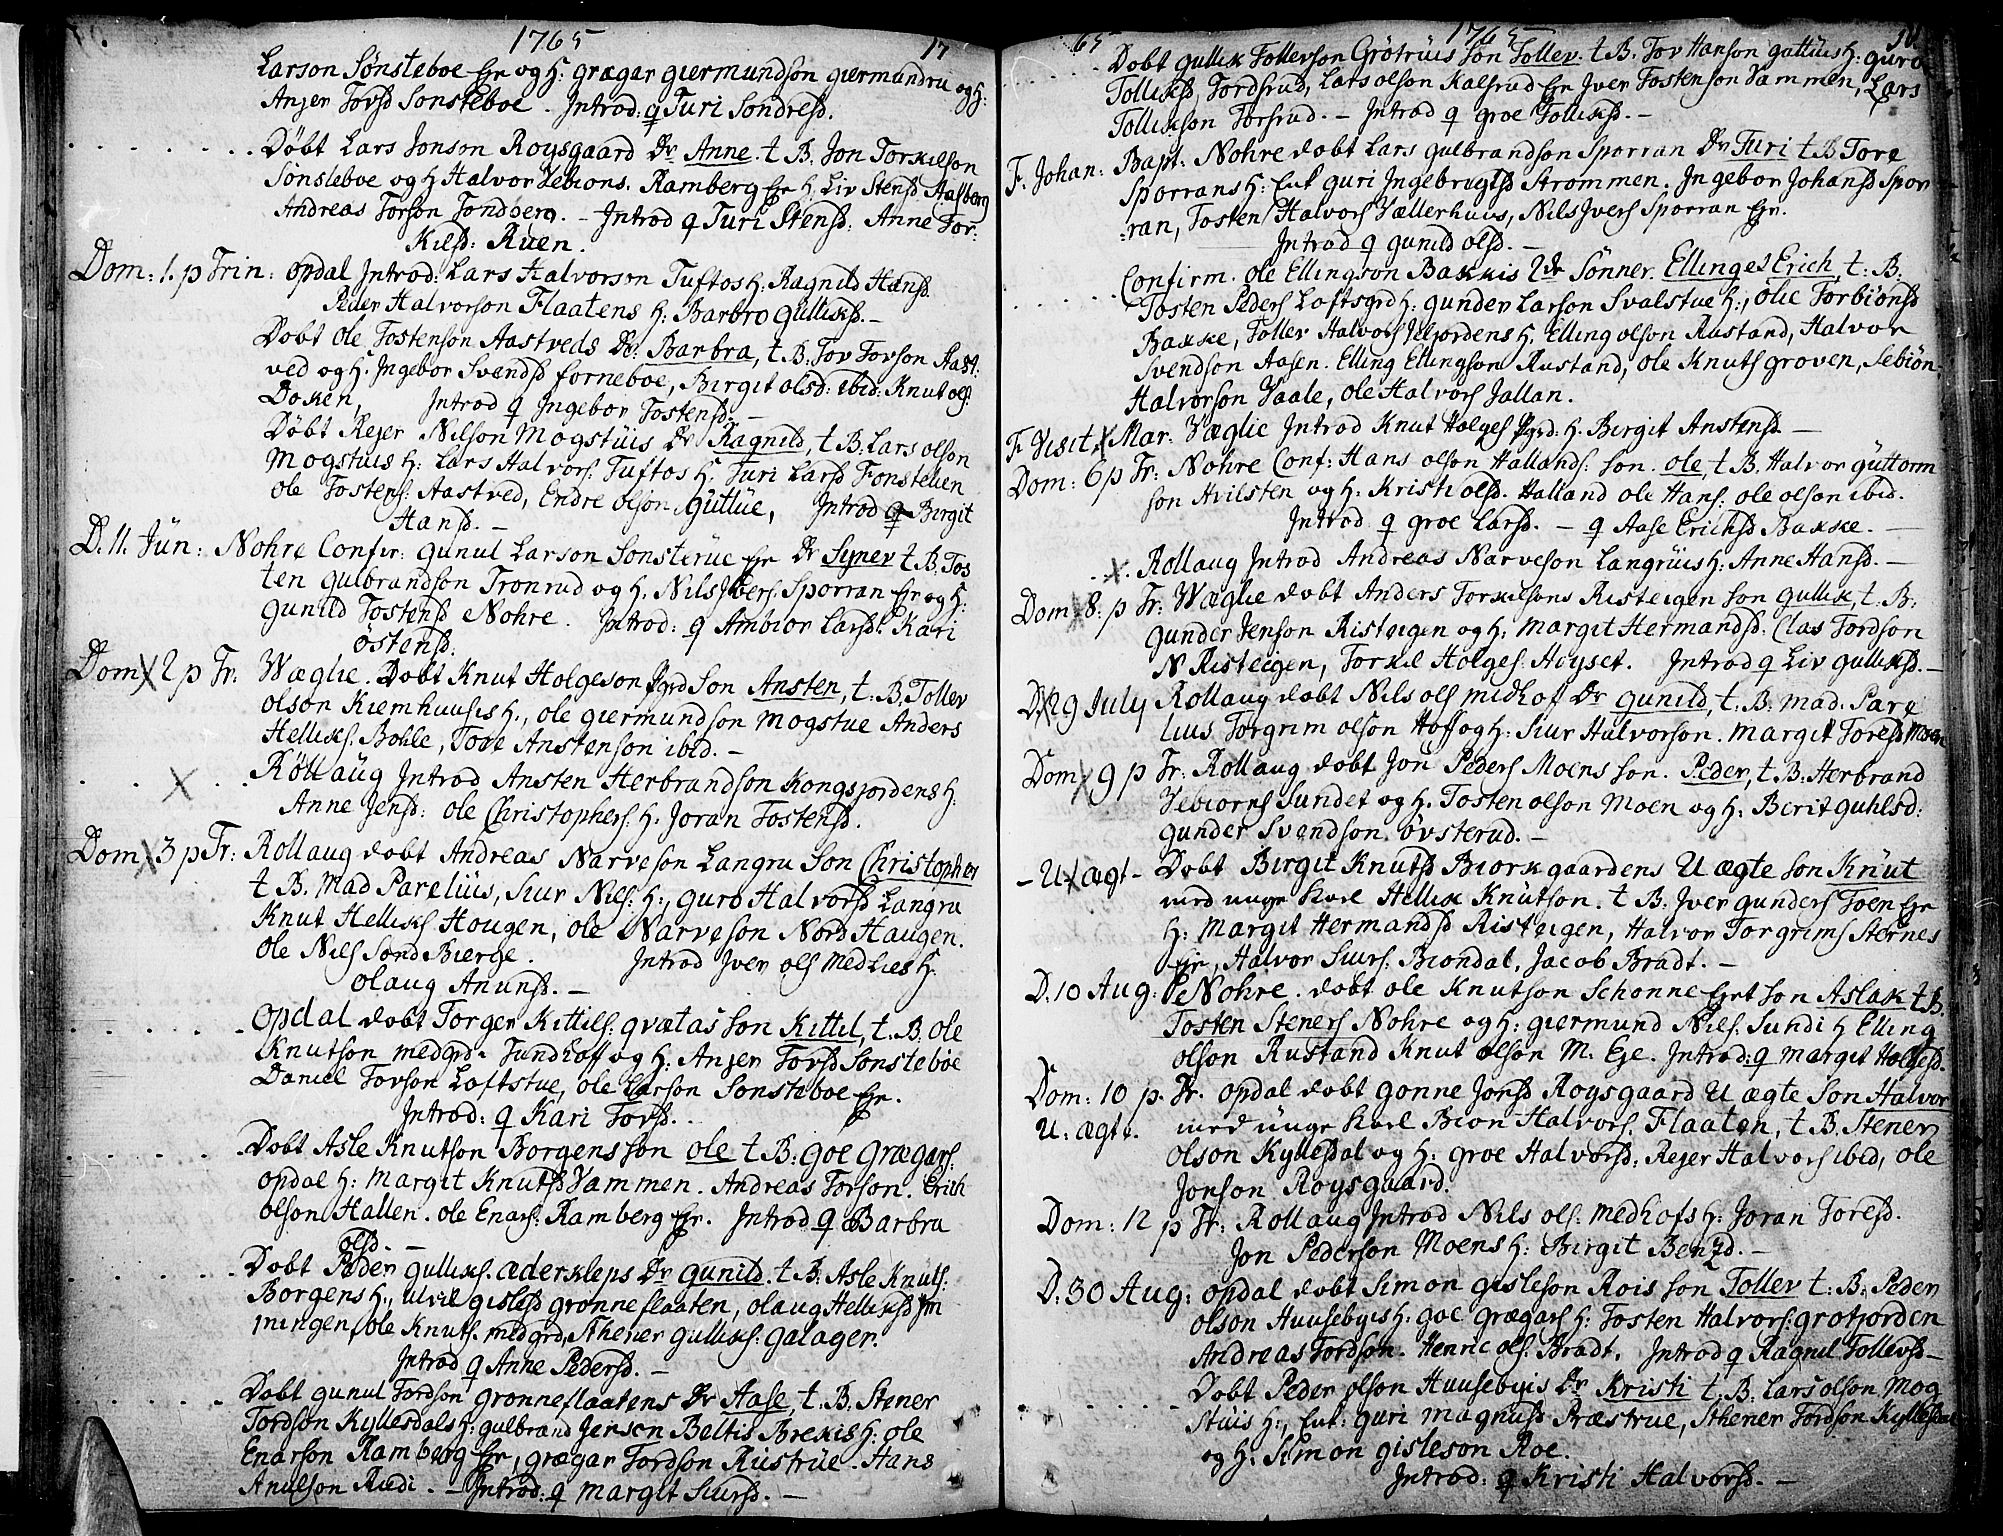 1765
17
Larson Sønsteboe Eje og H: grægar giermundson giermundru og H:
Anjer Torsd Sønsteboe. Introd: q Turi Sondresd.
Døbt Lars Jonson Roysgaard Dr Anne. t B. Jon Torkilson
Sønsteboe og H Halvor Vebions. Ramberg Eje H. Liv Stensd Aasberg
Andreas Torson Tondberg. - Introd q Turi Stensd: Anne Tor-
kilsd: Ruen.
Dom: 1. p Trin: Opdal Introd: Lars Halvorson Tuftos H: Ragnild Hansd.
Peder Halvorson Flaatens H: Barbro Gulliksd. -
Dobt Ole Tostenson Aastveds Dr: Barbra, t. B. Tor Torson Aast:
ved og H. Ingebor Svendsd Forneboe, Birgit olsd: ibid: Knut ols.
Doken, Introd q Ingebor Tostensd. -
Døbt Rejer Nilson Mogstüis Dr Ragnild, t. B: Lars olson
Mogstuis H: Lars Halvors: Tuftos H. Turi Larsd Fonstelien
ole Tostens: Aastved, Endre olson Guttue, Introd q Birgit
Hansd. -
D. 11. Jün: Nohre Confir: Gunul Larson Sonsterüe Eje Dr Syner t B: Tos
ten gulbrandson Tronrud og H. Nils Ivers: Sporran Eje og H:
Gunild Tostensd Nohre. Introd: q Ambior Larsd. Kari
Østensd.
Dom X 2 p Tr: Wæglie. Dobt Knut Holgeson Pgrd Son Ansten, t. B. Tollev
olson Kiemhuusis H., ole giermundson Mogstue Anders
Helliks: Bohle, Tove Anstenson ibid. -
X Röllaüg Introd Ansten Herbrandson Kongsjordens H.
Anne Jensd: ole Christophers. H. Joran Tostensd.
Dom X 3 p Tr: Rollaug dobt Andreas Narveson Langru Son Christopher
t. B. Mad Parelüis, Siur Nils: H:, Guro Halvorsd Langru
Knut Helliks Hougen, ole Narveson Nord Haugen.
Ole Nils Sond Bierge. Introd Iver ols Medlies H:
Olaug Anunsd. -
Opdal dobt Torger Kittils: qvætas Son Kittil, t. B: ole
Knutson medgrd. Tundhoff og H: Anjer Torsd Sønsteboe
Daniel Torson Loftstue, ole Larson Sonsteboe Eje.
Introd: q Kari Torsd.
Dobt Asle Knutson Borgens son ole t B: Goe Grægars:
opdal H: Margit Knutsd Vammen. Andreas Torson. Erich
olson Hallen. ole Enars: Ramberg Eje. Introd q Barbra
olsd. -
Dobt Peder Gulliks. Æderkleps Dr Gunild. t B. Asle Knuts:
Borgens H:, Ulvil gislesd grønneflaaten, Olaug Helliksd Im
mingen, ole Knuts: medgrd, Sthener Gulliks: Galager.
Introd q Anne Pedersd. -
Dobt gunul Tordson grønneflaatens Dr Aase, t. B. Stener
Tordson Kyllesdals H: gulbrand Jensen Beltis Brekis H: ole
Enarson Ramberg Eje, grægar Tordson Rustrüe. Hans
Anulson Rudi. - Introd: q Margit Siursd. -
65
1765
Dobt Gullik Tollevson Grötrüis Son Tollev. t B. Tov Hanson gattüis H: Guro
Tolliksd, Tordsrud, Lars olson Kalsrud Eje Iver Tostenson Vammen, Lars
Tollikson Torsrud. - Introd q groe Tolliksd. -
F. Johan: Bapt: Nohre dobt Lars Gulbrandson Sporran Dr Turi t B Tore
Sporrans H: Enk: Guri Ingebrigtsd Strommen. Ingebor Johansd Spor
ran, Tosten Halvors Vællerhuus, Nils Ivers Sporran Eje.
Introd q Gunild olsd. -
Confirm. ole Ellingson Bakkis 2de Sønner. Elling es Erich, t: B.
Tosten Peders Loftsgrd H: Gunder Larson Svalstue H:, Olie Torbiönsd
Bakke, Toller Halvors Veljordens H. Elling olson Rustand, Halvor
Svendson Aasen. Elling Ellingson Rustand, ole Knuts groven, Sebiön
Halvorson Vaale, ole Halvors Jallan.
F Visit X Mar: Væglie Introd Knut Holges Pgrd: H: Birgit Anstensd -
Dom: 6 p Tr: Nohre Conf: Hans olson Hallands: son. ole, t B. Halvor Guttorm
son Hvilsten og H: Kristi olsd. Halland ole Hans: ole olson ibid.
Introd q groe Larsd. - q Aase Erichsd Bakke. -
X. Rollaug Introd Andreas Narveson Langrüis H: Anne Hansd. -
Dom X 8: p Tr: Wæglie dobt Anders Torkilsons Risteigen son Gullik, t. B:
Gunder Jenson Risteigen og H: Margit Hermandsd. Clas Tordson
N Risteigen, Torkil Holges: Høyset. Introd q Liv Gulliksd. -
D X 29 July Rollaug dobt Nils ols Midhof Dr Gunild, t. B. Mad. Pare
lius Torgrim olson Hoff og H: Siur Halvorson. Margit Toresd Moen
Dom X 9 p Tr: Rollaug dobt Jon Peders Moens son. Peder, t. B: Herbrand
Vebiorns Sundet og H. Tosten olson Moen og H: Berit Guhlsd:
Gunder Svendson Øvsterud. -
- U X ægt - Dobt Birgit Knutsd Biorkgaardens U ægte Son Knüt
med unge Karl Hellik Knütson. t B. Iver Gunders Toen Eje
H: Margit Hermandsd Risteigen, Halvor Torgrims Sternes
Eje, Halvor Siurs: Biondal, Jacob Bradt. -
D. 10 Aug: Nohre. dobt ole Knutson Schonne Eget son Aslak t. B.
Tosten Steners Nohre og H: giermund Nils: Sundi H Elling
olson Rustand Knut olson M. Eje. Introd: q Margit Holgesd.
Dom: 10 p. Tr. Opdal dobt Gonne Jonsd Roysgaard U ægte Son Halvor
U: ægte. med ünge Karl Bion Halvors. Flaaten, t. B. Stener
olson Kyllesdal og H: groe Halvorsd: Rejer Halvors ibid, ole
Jonson Roysgaard.
Dom: 12 p Tr: Rollaug Introd Nils ols: Medhofs H: Joran Toresd.
Jon Pederson Moens H: Birgit Bentsd. -
D. 30 Aug: Opdal dobt Simon gisleson Rois Son Tollev t: B: Peder
olson Huusebyis H: Goe Grægars H: Tosten Halvors: grotjorden
Andreas Tordson. Henric ols. Bradt. Introd q Ragnil Tollevsd -
Dobt Peder olson Huusebyis Dr Kristi t. B. Lars olson Mog
stüis H:, Enk: Guri Magnusd Præstrue, Sthener Tordson Kyllesdal
og H: Simon gisleson Roe.
Introd: q Kristi Halvorsd. -